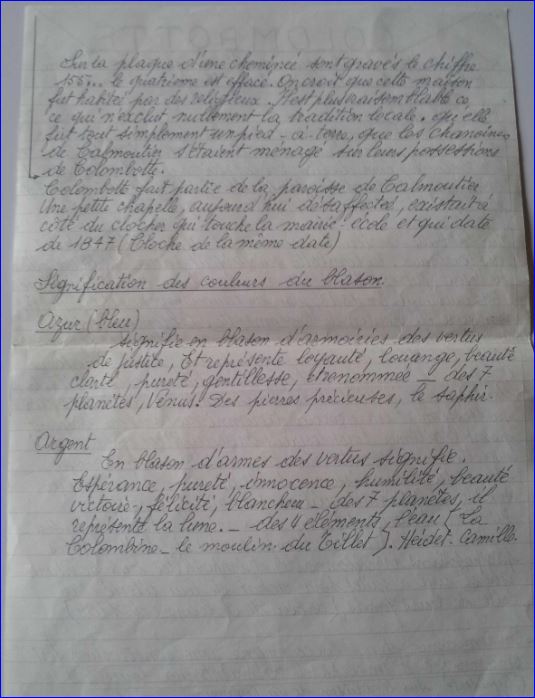 Sur la plaque d'une cheminée sont gravés le chiffre
155... le quatrième est effacé. On croit que cette maison
fut habité par des religieux. Il est plus vraisemblable ce,
ce qui n'exclut, nullement la tradition locale, qu'elle
fut tout simplement un pied-à-terre, que les chanoines
de Calmoutier s'étaient ménagé sur leurs possessions
de Colombotte.
Colombotte fait partie de la paroisse de Calmoutier
Une petite chapelle, aujourd'hui désaffectée, existait à
côté du clocher qui touche la mairie-école et qui date
de 1847 (Cloche de la même date)
Signification des couleurs du blason.
Azur (bleu)
signifie en blason d'armoiries des vertus
de justice, Et représente loyauté, louange, beauté
clarté, pureté, gentillesse, et renommée _ des 7
planètes, Vénus. Des pierres précieuses, le saphir.
Argent
En blason d'armes des vertus signifie.
Espérance, pureté, innocence, humilité, beauté
victoire, félicité, blancheur _ des 7 planètes, il
représente la lune. _ des 4 éléments, l'eau (La
Colombine _ le moulin du Tillet). Heidet. Camille.